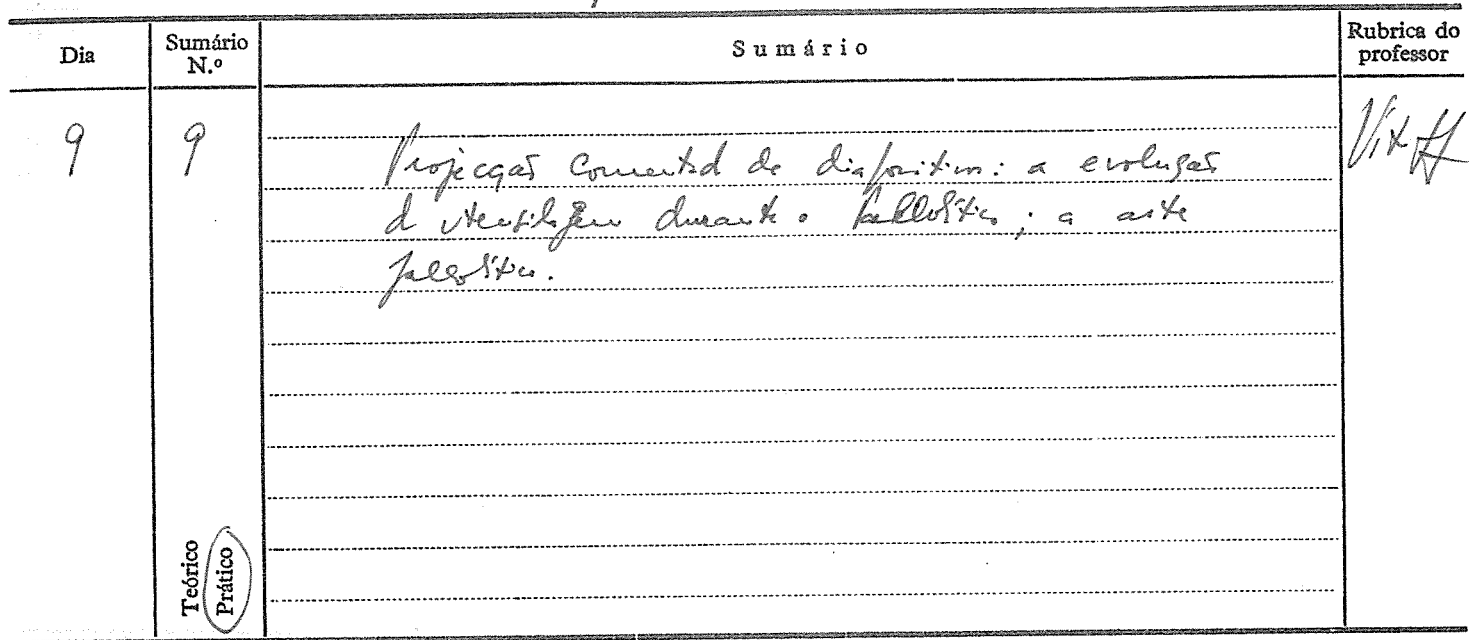 Dia
Sumário N.º
Sumário
Rubrica do professor
9
9
Projecção comentada de diapositivos: a evolução
da utensilagem durante o Paleolítico; a arte
paleolítica.
Teórico
Prático